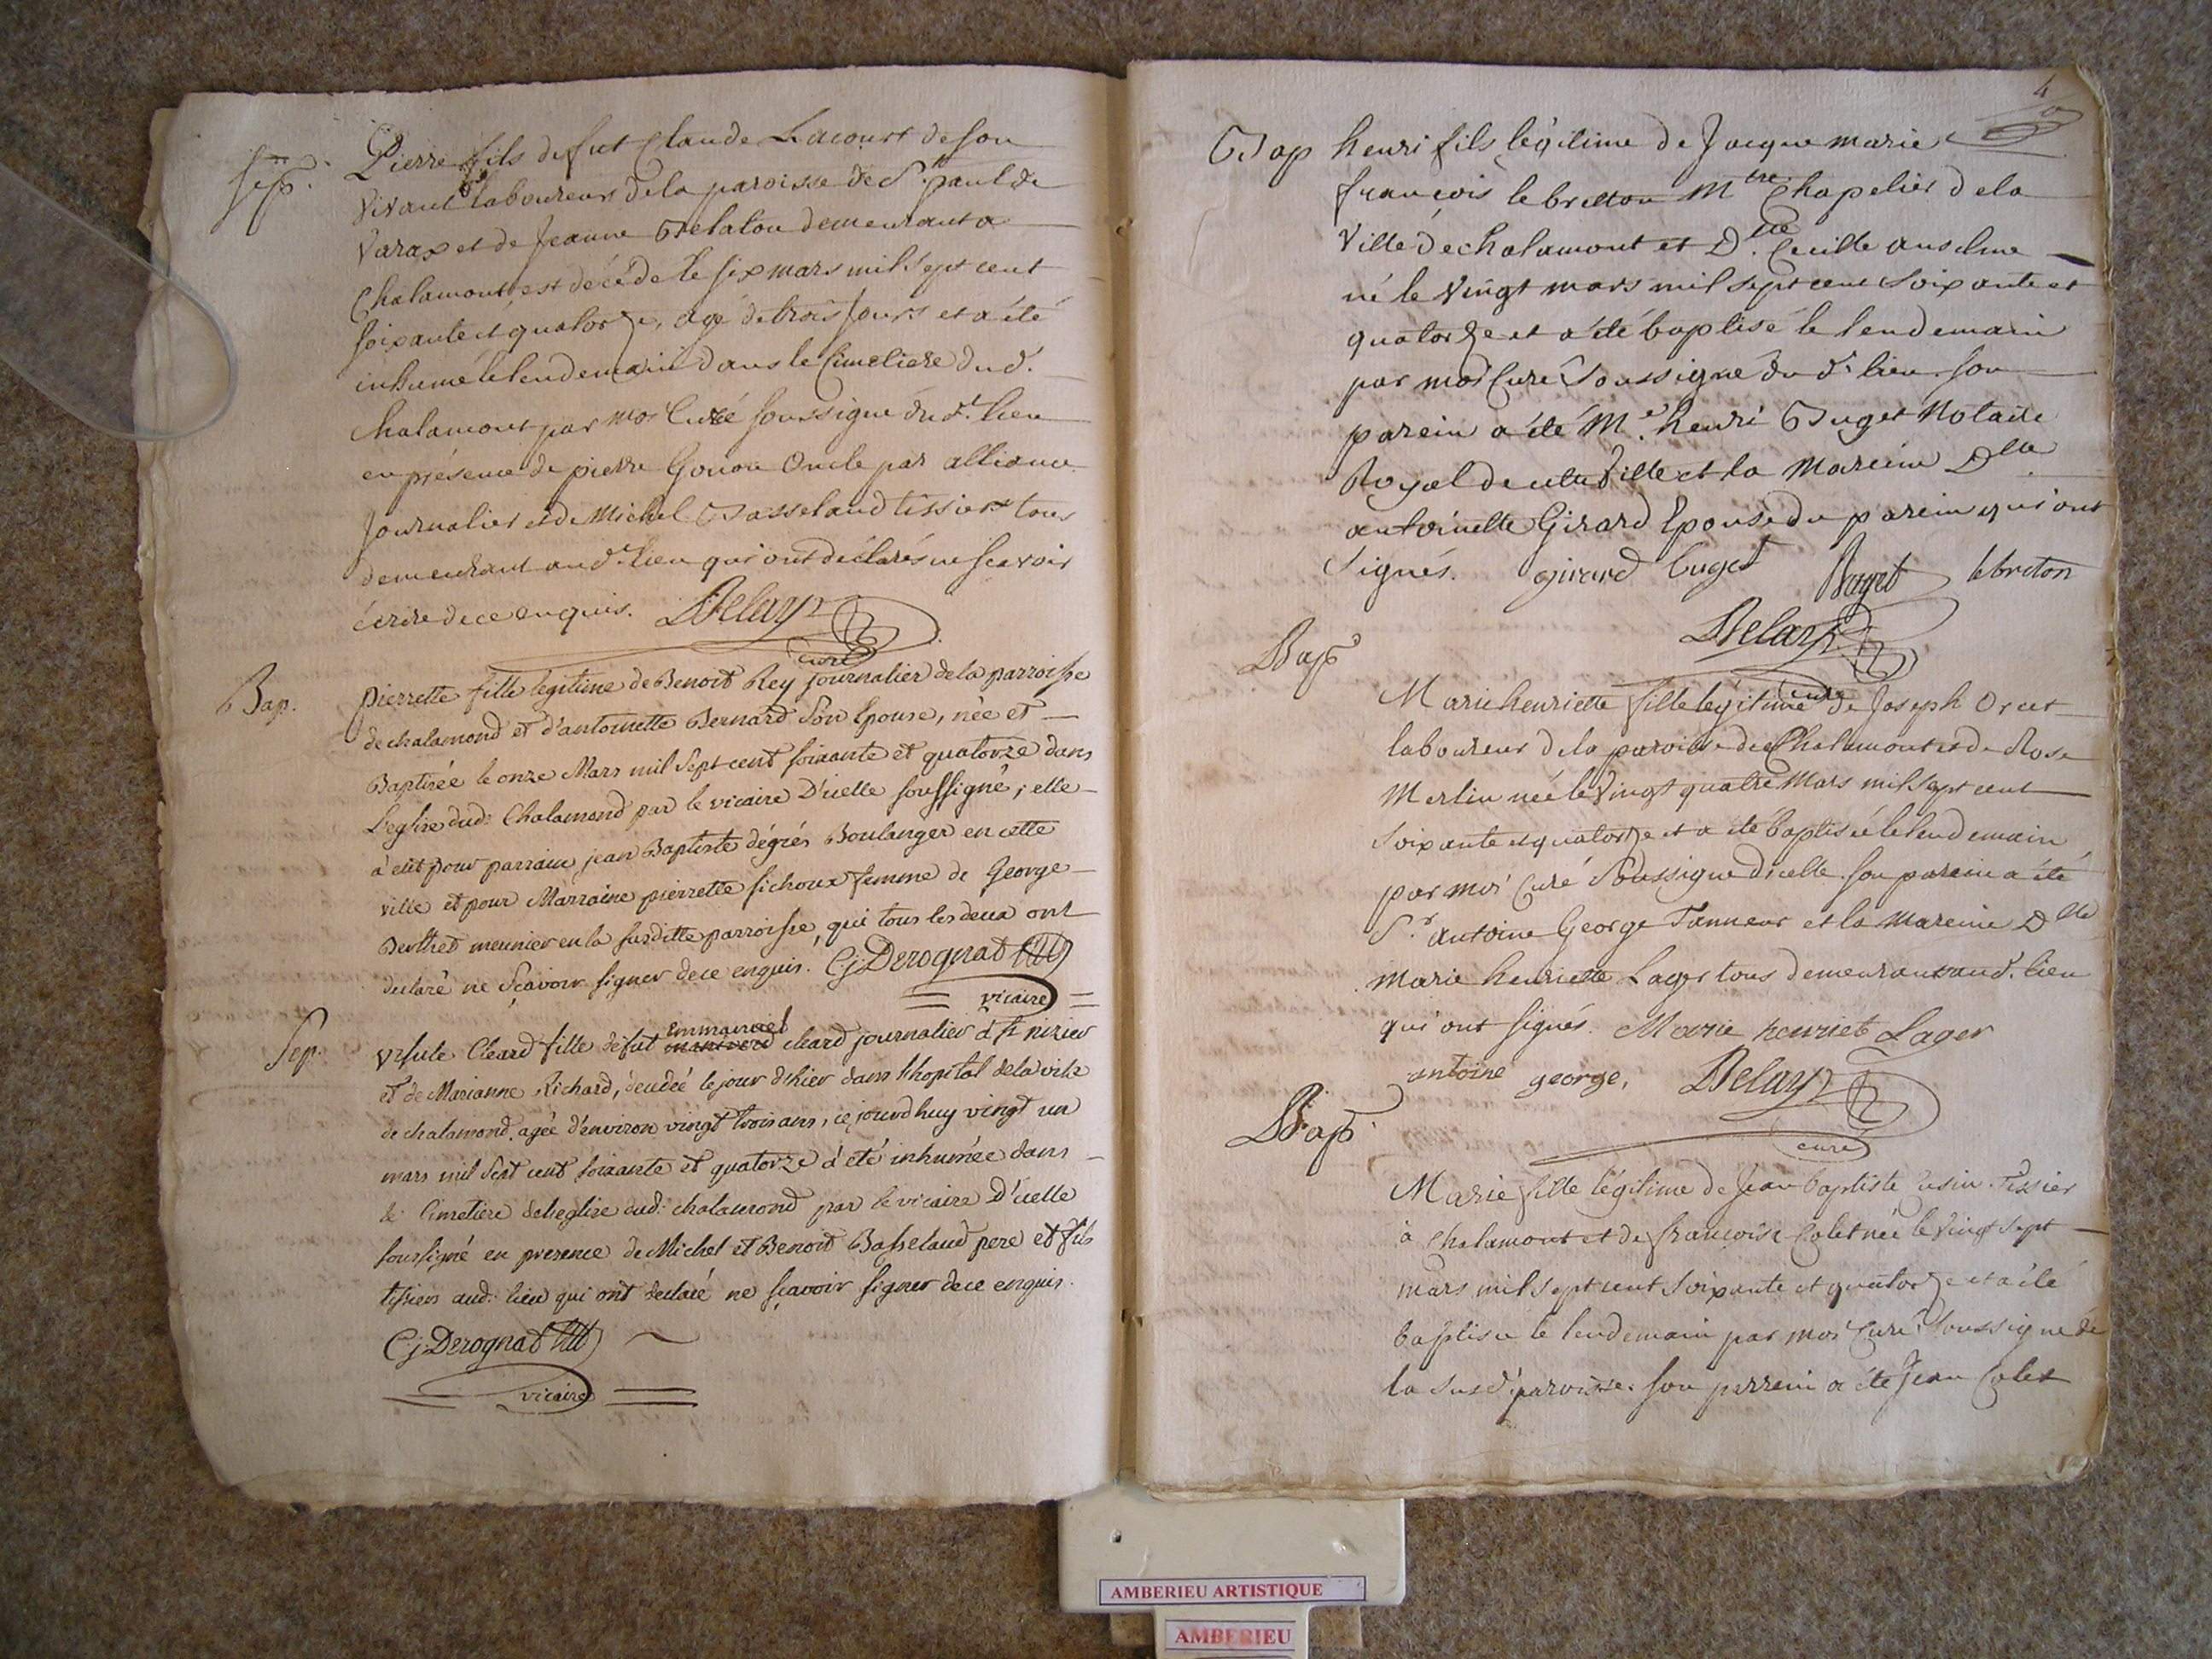 Sep. Pierre fils defut Claude Lacourt de son
vivant laboureur dela paroisse de St. paul de
Varax et de Jeanne demeurant a
Chalamont est décédé le six mars mil sept cent
soixante et quatorze, agé de trois jours et a été
inhumé le lendemain dans le Cimetiere dud.
chalamont par moi Curé soussigné dud. lieu
en présence de pierre Gonon Oncle par alliance
Journalier et de Michel Basseland tissier tous
demeurant aud. lieu qui ont déclarés ne scavoir
écrire de ce enquis. Delay
curé
Bap. pierrette fille legitime de Benoit Rey journalier de la parroisse
de chalamond et d'antoinette Bernard son Epouse, née et
Baptisée le onze Mars mil sept cent soixante et quatorze dans
L'eglise dud: Chalamond par le vicaire D'icelle soussigné; elle
à eut pour parrain jean Baptiste dégrés Boulanger en cette
ville et pour Marraine pierrette sichoux femme de George
Berthet meunier en la susditte parroisse, qui tous les deux ont
declaré ne sçavoir signer de ce enquis. Cj. Derognat
vicaire
Sep. Ursule Cleard fille de fut Emmanuel cleard journalier à st nizier
et de Marianne Richard, décédée le jour d'hier dans l'hopital de la ville
de chalamond, agée d'environ vingt trois ans, ce jourdhuy vingt un
mars mil sept cent soixante et quatorze à été inhumée dans
le Cimetiere de l'eglise dud: chalamond par le vicaire D'icelle
soussigné en presence de Michel et Benoit Basseland pere et fils
tissiers aud: lieu qui ont declaré ne sçavoir signer de ce enquis.
Cj. Derognat
vicaire
4
Bap henri fils légitime de Jacque marie
françois le bretton Mtre Chapelier dela
Ville de chalamont et Dlle. Cecille anselme
né le vingt mars mil sept cent soixante et
quatorze et a été baptisé le lendemain
par moi Curé soussigné dud. lieu. son
parein a été Me. henri Buget Notaire
Royal de cette Ville et la Mareine Dlle
antoinette Girard Epouse du parein qui ont
signés. girard buget Buget le breton
Delay
curé
Bap Marie henriette fille legitime de Joseph Orset
laboureur dela paroisse de Chalamont et de Rose
Merlin née le Vingt quatre Mars mil sept cent
soixante et quatorze et a été baptisée le lendemain
par moi Curé soussigné d'icelle. son parein a été
Sr. antoine George Tanneur et la mareine Dlle
marie henriette Lager tous demeurants aud. lieu
qui ont signés. Marie henriet Lager
antoine george, Delay
curé
Bap. Marie fille légitime de Jean baptiste Tissier
à Chalamont et de francoise Colet née le vingt sept
mars mil sept cent soixante et quatorze et a été
baptisée le lendemain par moi Curé soussigné de
la susd. paroisse. son parrein a été Jean Colet
AMBERIEU ARTISTIQUE
AMBERIEU